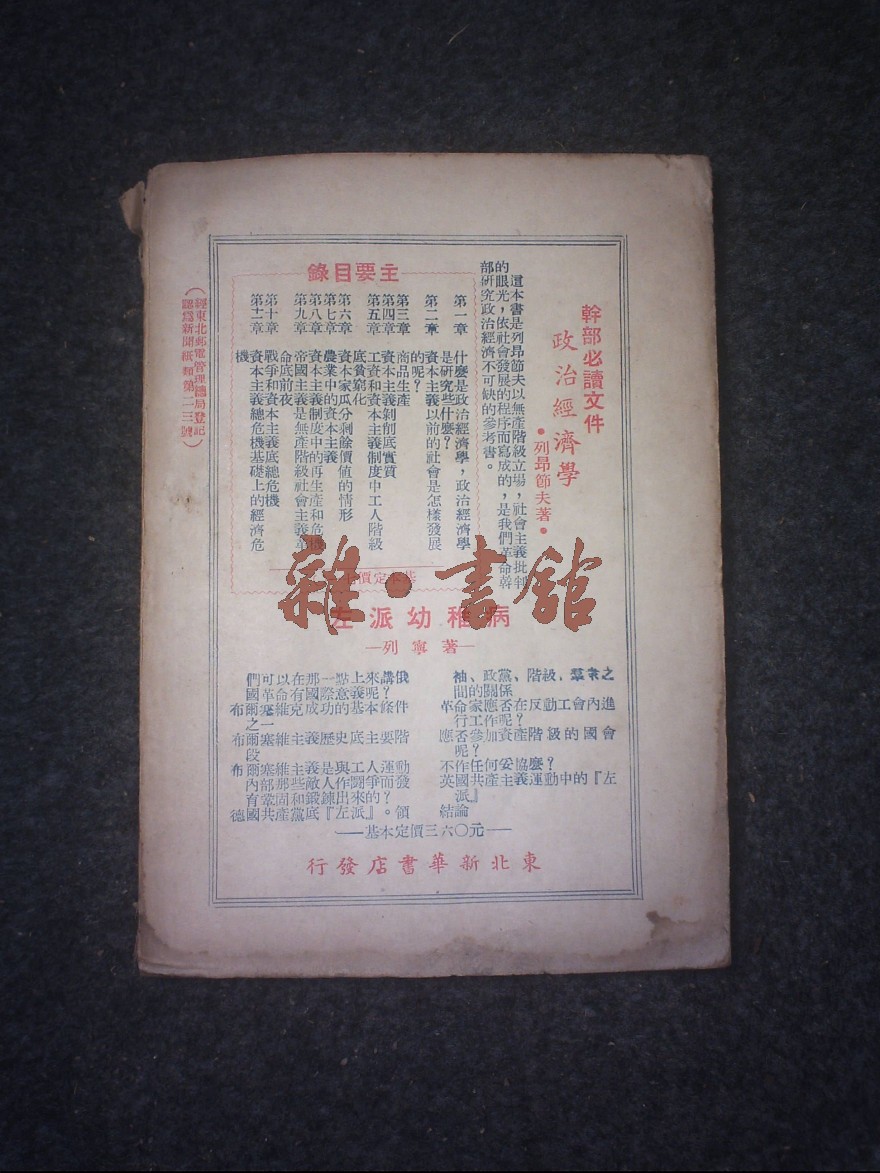 幹部必讀文件
政治經濟學
•列昂節夫著•
這本書是列昂節夫以無產階級立場，社會主義批判
的眼光，依社會發展的程序而寫成的，是我們革命幹
部研究政治經濟不可缺的參考書。
主要目錄
第一章 什麼是政治經濟學，政治經濟學
是研究些什麼？
第二章 資本主義以前的社會是怎樣發展
的呢？
第三章 商品生產
第四章 資本主義剝削底實質
第五章 工資和資本主義制度中工人階級
底貧窮化
第六章 資本家瓜分剩餘價值的情形
第七章 農業中的資本主義
第八章 資本主義制度中的再生產和危機
第九章 帝國主義是無產階級社會主義革
命底前夜
第十章 戰爭和資本主義底總危機
第十一章 資本主義總危機基礎上的經濟危
機
基本定價
雜•書館
左派幼稚病
—列寧著—
們可以在那一點上來講俄
國革命有國際意義呢？
布爾塞維克成功的基本條件
之一
布爾塞維主義歷史底主要階
段
布爾塞維主義是與工人運動
內部那些敵人作鬪爭而發
育鞏固和鍛鍊出來的？
德國共產黨底『左派』。領
袖、政黨、階級，羣衆之
間的關係
革命家應否在反動工會內進
行工作呢？
應否參加資產階級的國會
呢？
不作任何妥協麼？
英國共產主義運動中的『左
派』
結論
——基本定價三六〇元——
東北新華書店發行
（經東北郵電管理總局登記
認爲新聞紙類第二三號）